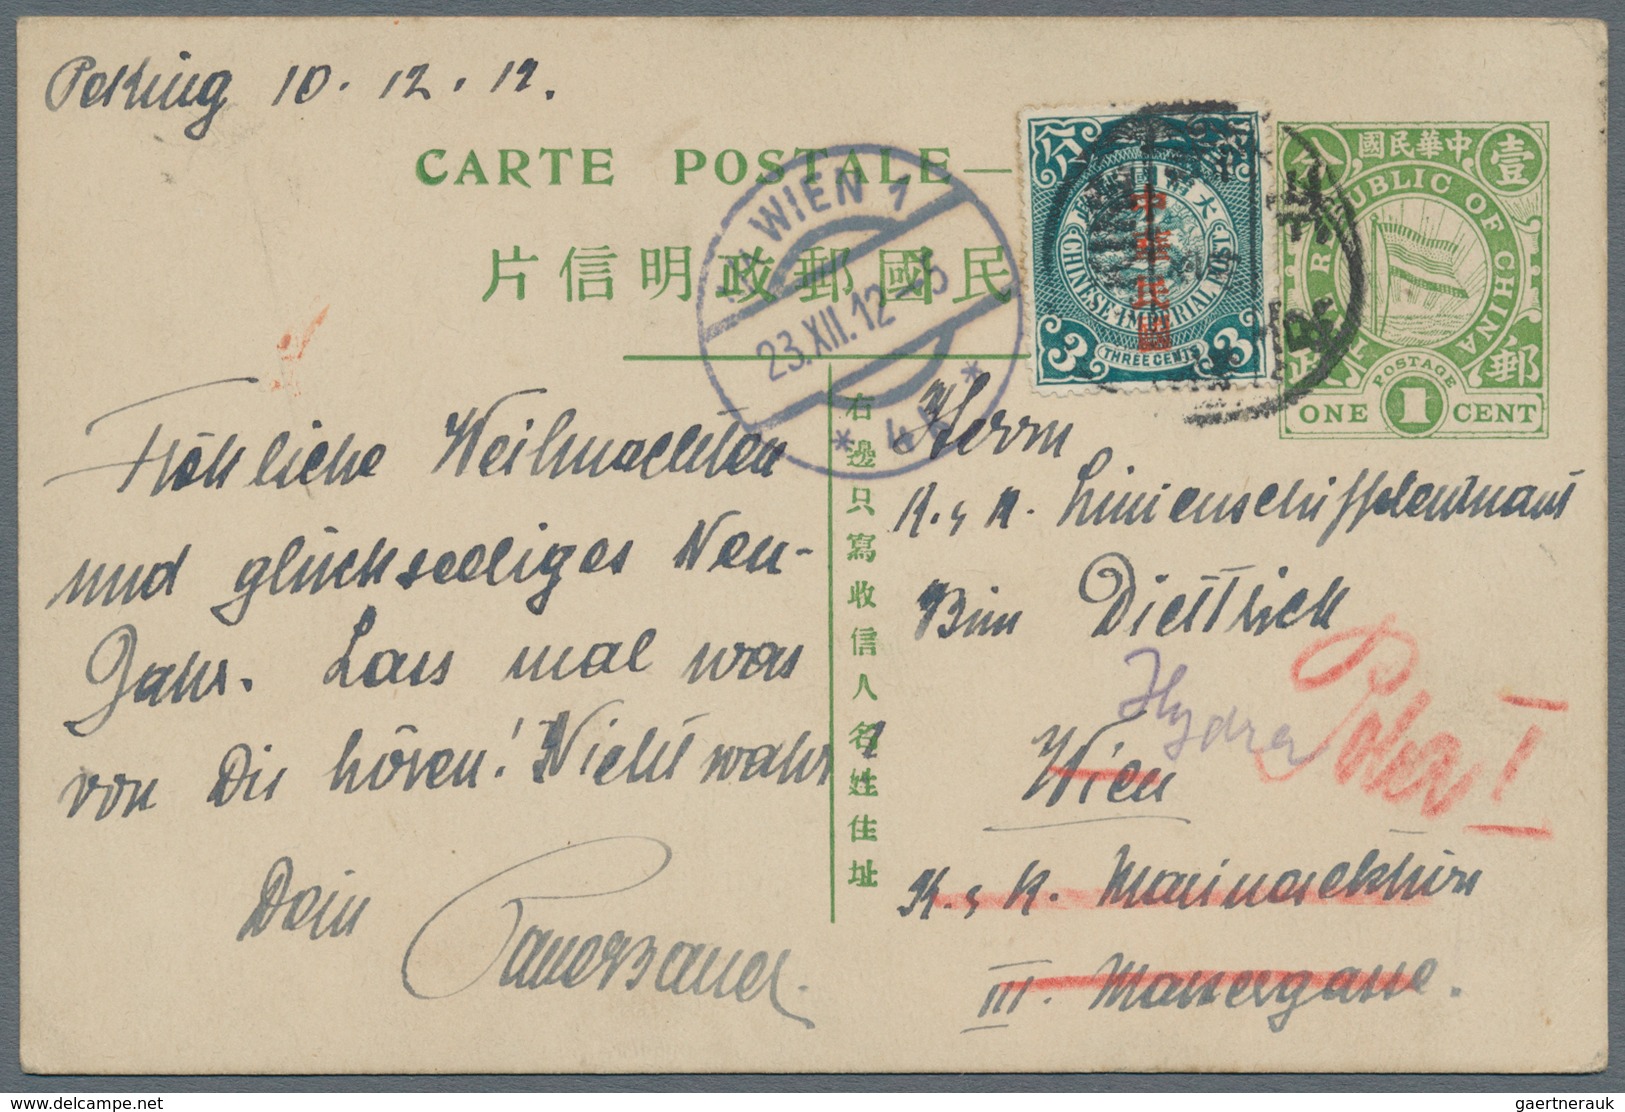 Peking 10.12.12.
CARTE POSTALE
民國郵政明信片
1/1 WIEN 1
23.XII.12-5
* 4 *
中華民國
CHINESE IMPERIAL POST
3 THREE CENTS 3
中華民國
壹
REPUBLIC OF CHINA
郵政
POSTAGE
ONE 1 CENT
Fröhliche Weihnachten
und glückseeliges Neu-
Jahr. Lass mal was
von Dir hören! Nicht wahr?
Dein
右邊只寫收信人名姓住址
Herrn
K. & K. Linienschiffsleutnant
Diettrich
Wien
Pola I
K. & K. Marinesektion
III. Marxergasse.
gaertnerauk
www.delcampe.net